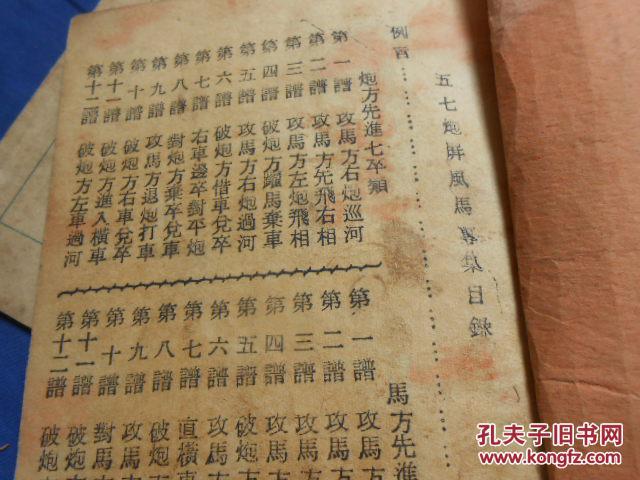 五七炮屏風馬專集目錄
例言
炮方先進七卒類
第一譜 攻馬方右炮巡河
第二譜 攻馬方先飛右相
第三譜 攻馬方左炮飛相
第四譜 破炮方躍馬棄車
第五譜 攻馬方右炮過河
第六譜 破炮方借車兌卒
第七譜 右車邊卒對平炮
第八譜 對炮方棄卒兌車
第九譜 攻馬方退炮打車
第十譜 破炮方右車兌卒
第十一譜 破炮方進入橫車
第十二譜 破炮方左車過河
馬方先進
第一譜 攻馬方
第二譜 攻馬方
第三譜 攻馬
第四譜 攻馬方
第五譜 破炮方
第六譜 攻馬方
第七譜 直橫車
第八譜 破炮方
第九譜 攻馬方
第十譜 對馬方
第十一譜 破炮方
第十二譜 破炮
孔夫子旧书网
www.kongfz.com